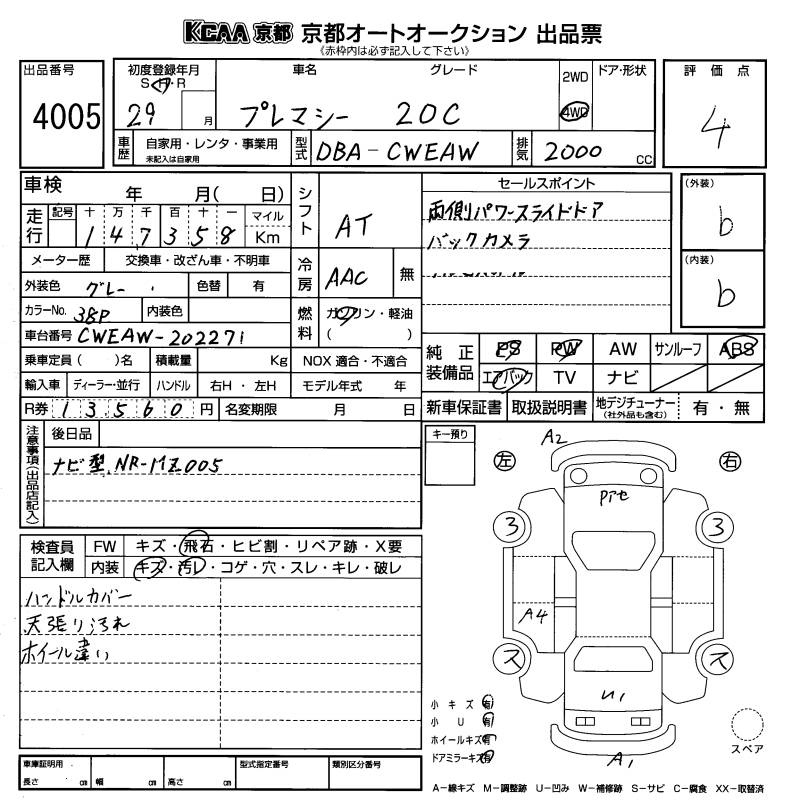 KCAA 京都 京都オートオークション 出品票
《赤枠内は必ず記入して下さい》
出品番号
4005
初度登録年月
S・H・R
29 月
車名 グレード
プレマシー 20C
2WD
4WD
ドア・形状
評価点
4
車歴
自家用・レンタ・事業用
未記入は自家用
型式
DBA-CWEAW
排気
2000 CC
車検 年 月( 日)
走行
記号 十 万 千 百 十 一
147358
マイル
Km
メーター歴 交換車・改ざん車・不明車
外装色 グレー 色替 有
カラーNo. 38P 内装色
車台番号 CWEAW-202271
乗車定員( )名 積載量 Kg
輸入車 ディーラー・並行 ハンドル 右H・左H
R券 13560円 名変期限 月 日
シフト
AT
冷房
AAC 無
燃料
ガソリン・軽油
( )
NOX 適合・不適合
モデル年式 年
セールスポイント
両側パワースライドドア
バックカメラ
(外装)
b
(内装)
b
純正装備品
PS PW AW サンルーフ ABS
エアバック TV ナビ
新車保証書 取扱説明書 地デジチューナー (社外品も含む) 有・無
注意事項(出品店記入)
後日品
ナビ型.NR-MZ005
キー預り
検査員記入欄
FW キズ・飛石・ヒビ割・リペア跡・X要
内装 キズ・汚レ・コゲ・穴・スレ・キレ・破レ
ハンドルカバー
天張り汚れ
ホイール違い
左
右
A2
3
3
A4
ス
ス
U1
A1
小キズ 有
小U 有
ホイールキズ 有
ドアミラーキズ 有
スペア
車庫証明用
長さ cm 幅 cm 高さ cm
型式指定番号
類別区分番号
A-線キズ M-調整跡 U-凹み W-補修跡 S-サビ C-腐食 XX-取替済